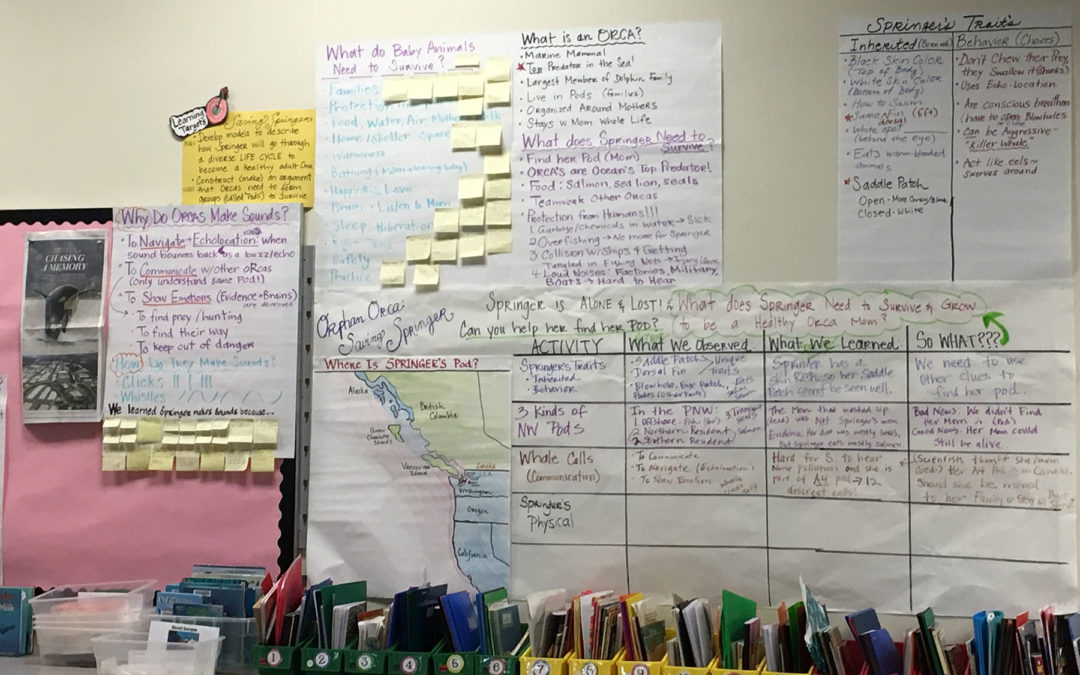 Learning Targets
Saving Springer
Develop models to describe
how Springer will go through
a diverse LIFE CYCLE to
become a Healthy adult Orca
Construct (make) an argument
that Orcas need to form
groups (called "Pods") to Survive
What do Baby Animals
Need to Survive?
Families
Protection
Food, Water, Air Mother's Milk
Home/shelter Space
Warmness
Happiness Love
Brain - Listen to Mom
Sleep Hibernation
Safety
Practice
What is an ORCA?
• Marine Mammal
* Top Predator in the Sea!
• Largest Member of Dolphin Family
• Live in Pods (families)
• Organized Around Mothers
• Stays w Mom Whole Life
What does Springer Need to
Survive?
• Find her Pod (Mom)
• ORCA's are Ocean's Top Predator!
• Food: Salmon, sea lion, seals
• Teamwork Other Orcas
• Protection from Humans!!!
1. Garbage/chemicals in water → Sick
2. Overfishing → No more for Springer
3 Collision w/Ships & Getting
Tangled in Fishing Nets → Injury
4. Loud Noises: Factories, Military,
Boats → Hard to Hear
Springer's Traits
Inherited (Born with)
• Black Skin Color
(Top of Body)
• White Skin Color
(Bottom of Body)
• How to Swim
* Same Fin (6ft)
dorsal
• White spot
(behind the eye)
• Eats warm-blooded
animals
* Saddle Patch
Open -
Closed - White
Behavior (Choices)
• Don't Chew their Prey,
they Swallow it
• Uses Echo-Location
• Are conscious breathers
(have to open Blowholes)
• Can be Aggressive-
"Killer Whale"
• Act like eels~
swerves around
CHASING
A MEMORY
Why Do Orcas Make Sounds?
• To Navigate → Echolocation: When
sound bounces back as a buzz/echo
• To Communicate w/other orcas
(only understand same Pod!)
• To Show Emotions (Evidence → Brains)
are developed
→ To find prey/hunting
To find their way
To keep out of danger
How Do They Make Sounds?
• Clicks
• Whistles
We learned Springer makes Sounds because...
Orphan Orca:
Saving Springer
Springer is ALONE & LOST! & What does Springer Need to Survive & Grow
Can you help her find her Pod? to be a Healthy Orca Mom?
Where Is SPRINGER's Pod?
Alaska
British
Columbia
Queen
Charlotte
Islands
Vancouver
Island
Canada
U.S.A.
Washington
Oregon
California
ACTIVITY
What We Observed
What We Learned
So WHAT???
Springer's
Traits
• Inherited
• Behavior
• Saddle Patch, Unique
Dorsal Fin Traits
• Blowhole, Eye Patch,
Springer has a
Skin Rash, so her Saddle
Patch can't be seen well.
We need to use
other clues to
find her pod...
3 Kinds of
NW Pods
In the PNW:
1. Offshore
2. Northern Resident
2 Southern Resident
salmon
The Mom that washed up
(dead) was Not Springer's mom
Evidence: Her diet was mostly Seals,
But Springer eats mostly salmon
Bad News: We didn't Find
her Mom
Good News: Her Mom could
still be alive.
Whale Calls
(Communication)
• To Communicate
• To Navigate (Echolocation)
• To Show Emotion
Hard for S. to hear
Noise pollution and she is
part of A4 pod → 12
discreet calls!
(Scientists thought she/mom
died) Her A4 Pod is in Canada.
Should she be moved
to her Family or Stay in
Springer's
Physical
1
2
3
4
5
6
7
8
9